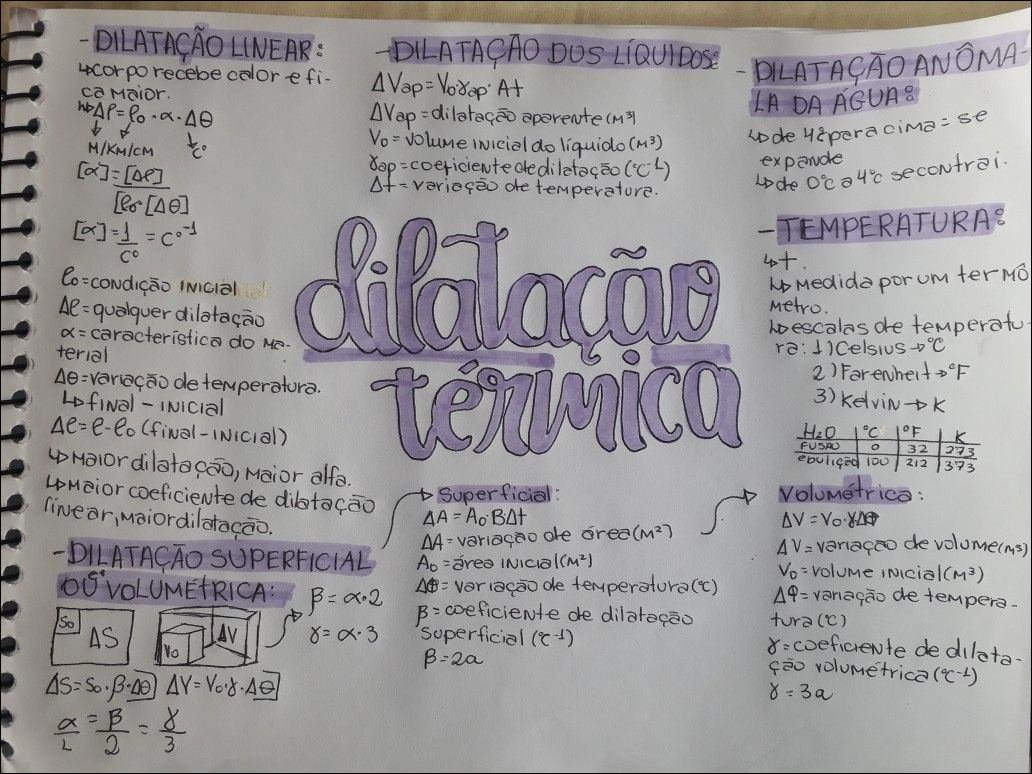 - DILATAÇÃO LINEAR:
↳corpo recebe calor e fi-
ca maior.
↳Δℓ=ℓ₀·α·Δθ
M/KM/CM C°
[α]=[Δℓ]
[ℓ₀·[Δθ]
[α]=1/C° = C°⁻¹
ℓ₀=condição inicial
Δℓ=qualquer dilatação
α=característica do ma-
terial
Δθ=variação de temperatura.
↳final - inicial
Δℓ=ℓ-ℓ₀ (final-inicial)
↳Maior dilatação, maior alfa.
↳Maior coeficiente de dilatação
linear, maior dilatação.
- DILATAÇÃO SUPERFICIAL
OU VOLUMÉTRICA:
S₀ ΔS
V₀ ΔV
β=α·2
γ=α·3
ΔS=S₀·β·Δθ ΔV=V₀·γ·Δθ
α/1 = β/2 = γ/3
- DILATAÇÃO DOS LÍQUIDOS:
ΔVap=V₀γap·Δt
ΔVap=dilatação aparente(M³)
V₀=volume inicial do líquido(M³)
γap=coeficiente de dilatação(°C⁻¹)
Δt=variação de temperatura.
dilatação
térmica
Superficial:
ΔA=A₀·BΔt
ΔA=variação de área(M²)
A₀=área inicial(M²)
Δθ=variação de temperatura(°C)
β=coeficiente de dilatação
superficial(°C⁻¹)
β=2a
- DILATAÇÃO ANÔMA-
LA DA ÁGUA:
↳de 4° para cima= se
expande
↳de 0°C a 4°C se contrai.
- TEMPERATURA:
↳t.
↳Medida por um termô
metro.
↳escalas de temperatu
ra: 1)Celsius→°C
2)Farenheit→°F
3)Kelvin→K
H₂O °C °F K
FUSÃO 0 32 273
ebulição 100 212 373
Volumétrica:
ΔV=V₀·γΔθ
ΔV=variação de volume(M³)
V₀=volume inicial(M³)
Δφ=variação de tempera-
tura(°C)
γ=coeficiente de dilata-
ção volumétrica(°C⁻¹)
γ=3a